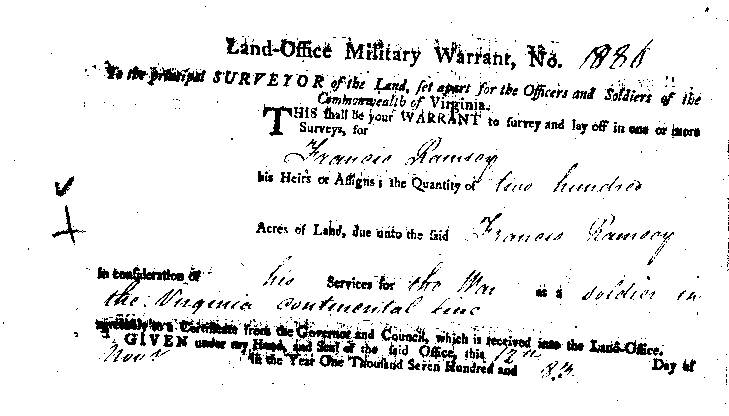 Land-Office Military Warrant, No. 1886
To the principal SURVEYOR of the Land, set apart for the Officers and Soldiers of the
Commonwealth of Virginia.
THIS shall be your WARRANT to survey and lay off in one or more
Surveys, for
Francis Ramsey
his Heirs or Assigns; the Quantity of two hundred
Acres of Land, due unto the said Francis Ramsey
in consideration of his Services for the War as a soldier in
the Virginia continental line
agreeably to a Certificate from the Governor and Council, which is received into the Land-Office.
GIVEN under my Hand, and Seal of the said Office, this 12th Day of
Novr in the Year One Thousand Seven Hundred and 83